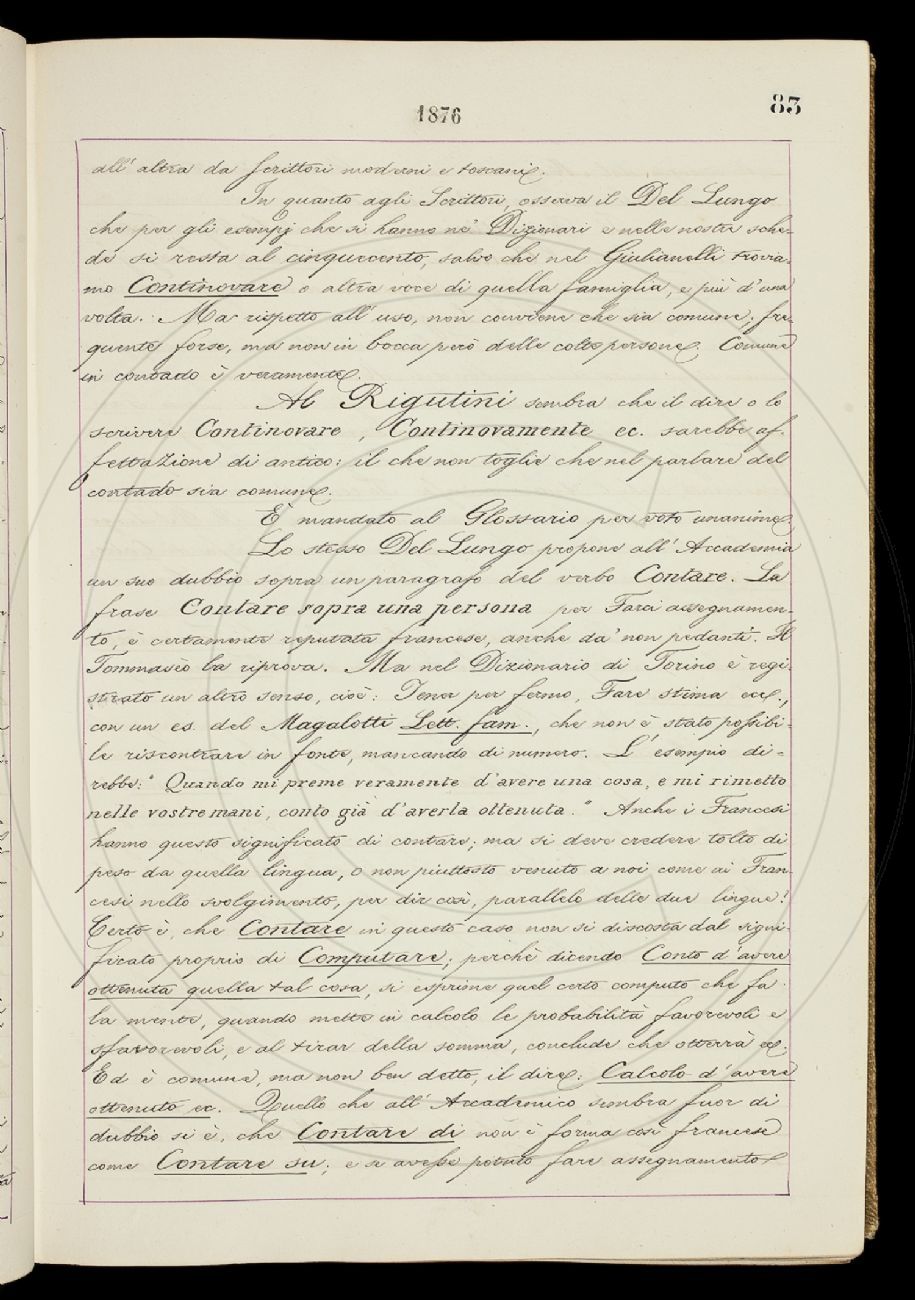 1876
83
all' altra da Scrittori moderni e toscani.
In quanto agli Scrittori, osserva il Del Lungo
che per gli esempj che si hanno ne' Dizionari e nelle nostre sche-
de si resta al cinquecento, salvo che nel Giulianelli trovia-
mo Continovare o altra voce di quella famiglia, e più d'una
volta. Ma rispetto all' uso, non conviene che sia comune; fre-
quente forse, ma non in bocca però delle colte persone. Comune
in contado è veramente.
Al Rigutini sembra che il dire o lo
scrivere Continovare, Continovamente ec. sarebbe af-
fettazione di antico: il che non toglie che nel parlare del
contado sia comune.
È mandato al Glossario per voto unanime.
Lo stesso Del Lungo propone all' Accademia
un suo dubbio sopra un paragrafo del verbo Contare. La
frase Contare sopra una persona per Farci assegnamen-
to, è certamente reputata francese, anche da' non pedanti. Il
Tommasèo la riprova. Ma nel Dizionario di Torino è regi-
strato un altro senso, cioè: Tener per fermo, Fare stima ecc.,
con un es. del Magalotti Lett. fam., che non è stato possibi-
le riscontrare in fonte, mancando di numero. L' esempio di-
rebbe: " Quando mi preme veramente d'avere una cosa, e mi rimetto
nelle vostre mani, conto già d'averla ottenuta. " Anche i Francesi
hanno questo significato di contare; ma si deve credere tolto di
peso da quella lingua, o non piuttosto venuto a noi come ai Fran-
cesi nello svolgimento, per dir così, parallelo delle due lingue?
Certo è, che Contare in questo caso non si discosta dal signi-
ficato proprio di Computare; perchè dicendo Conto d'avere
ottenuta quella tal cosa, si esprime quel certo computo che fa
la mente, quando mette in calcolo le probabilità favorevoli e
sfavorevoli, e al tirar della somma, conclude che otterrà ec.
Ed è comune, ma non ben detto, il dire: Calcolo d'avere
ottenuto ec. Quello che all' Accademico sembra fuor di
dubbio si è, che Contare di non è forma così francese
come Contare su; e se avesse potuto fare assegnamento